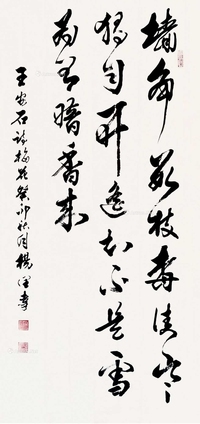 墙角数枝梅凌寒
独自开遥知不是雪
为有暗香来
王安石诗梅花癸卯秋月杨